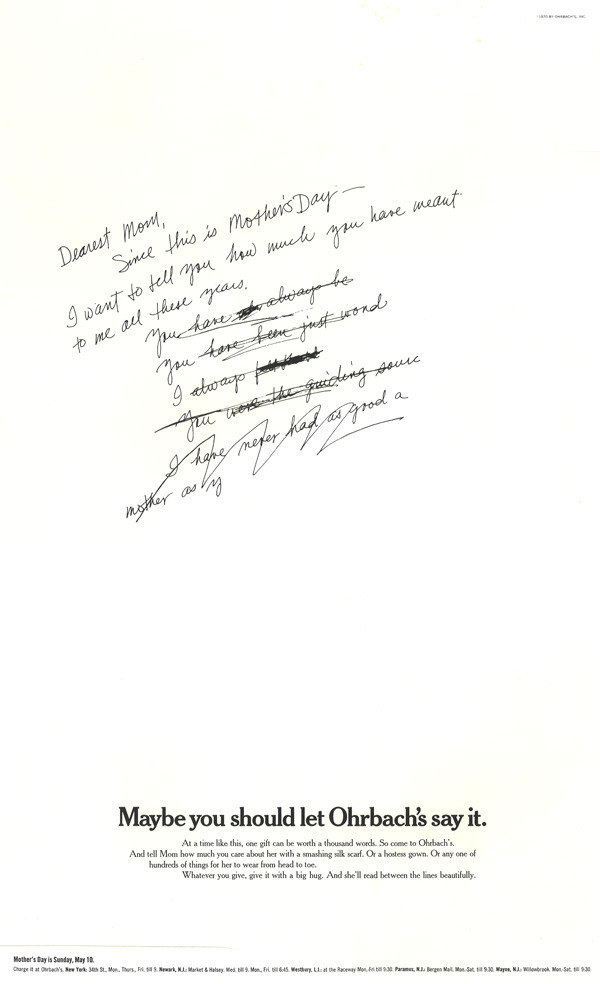 ©1970 BY OHRBACH'S, INC.
Dearest Mom,
Since this is Mother's Day—
I want to tell you how much you have meant
to me all these years.
You have always be
You have been just wond
I always
You were the guiding sourc
I have never had as good a
mother as y
Maybe you should let Ohrbach's say it.
At a time like this, one gift can be worth a thousand words. So come to Ohrbach's.
And tell Mom how much you care about her with a smashing silk scarf. Or a hostess gown. Or any one of
hundreds of things for her to wear from head to toe.
Whatever you give, give it with a big hug. And she'll read between the lines beautifully.
Mother's Day is Sunday, May 10.
Charge it at Ohrbach's. New York: 34th St., Mon., Thurs., Fri. till 9. Newark, N.J.: Market & Halsey. Wed. till 9. Mon., Fri. till 6:45. Westbury, L.I.: at the Raceway Mon.-Fri till 9:30. Paramus, N.J.: Bergen Mall. Mon.-Sat. till 9:30. Wayne, N.J.: Willowbrook. Mon.-Sat. till 9:30.